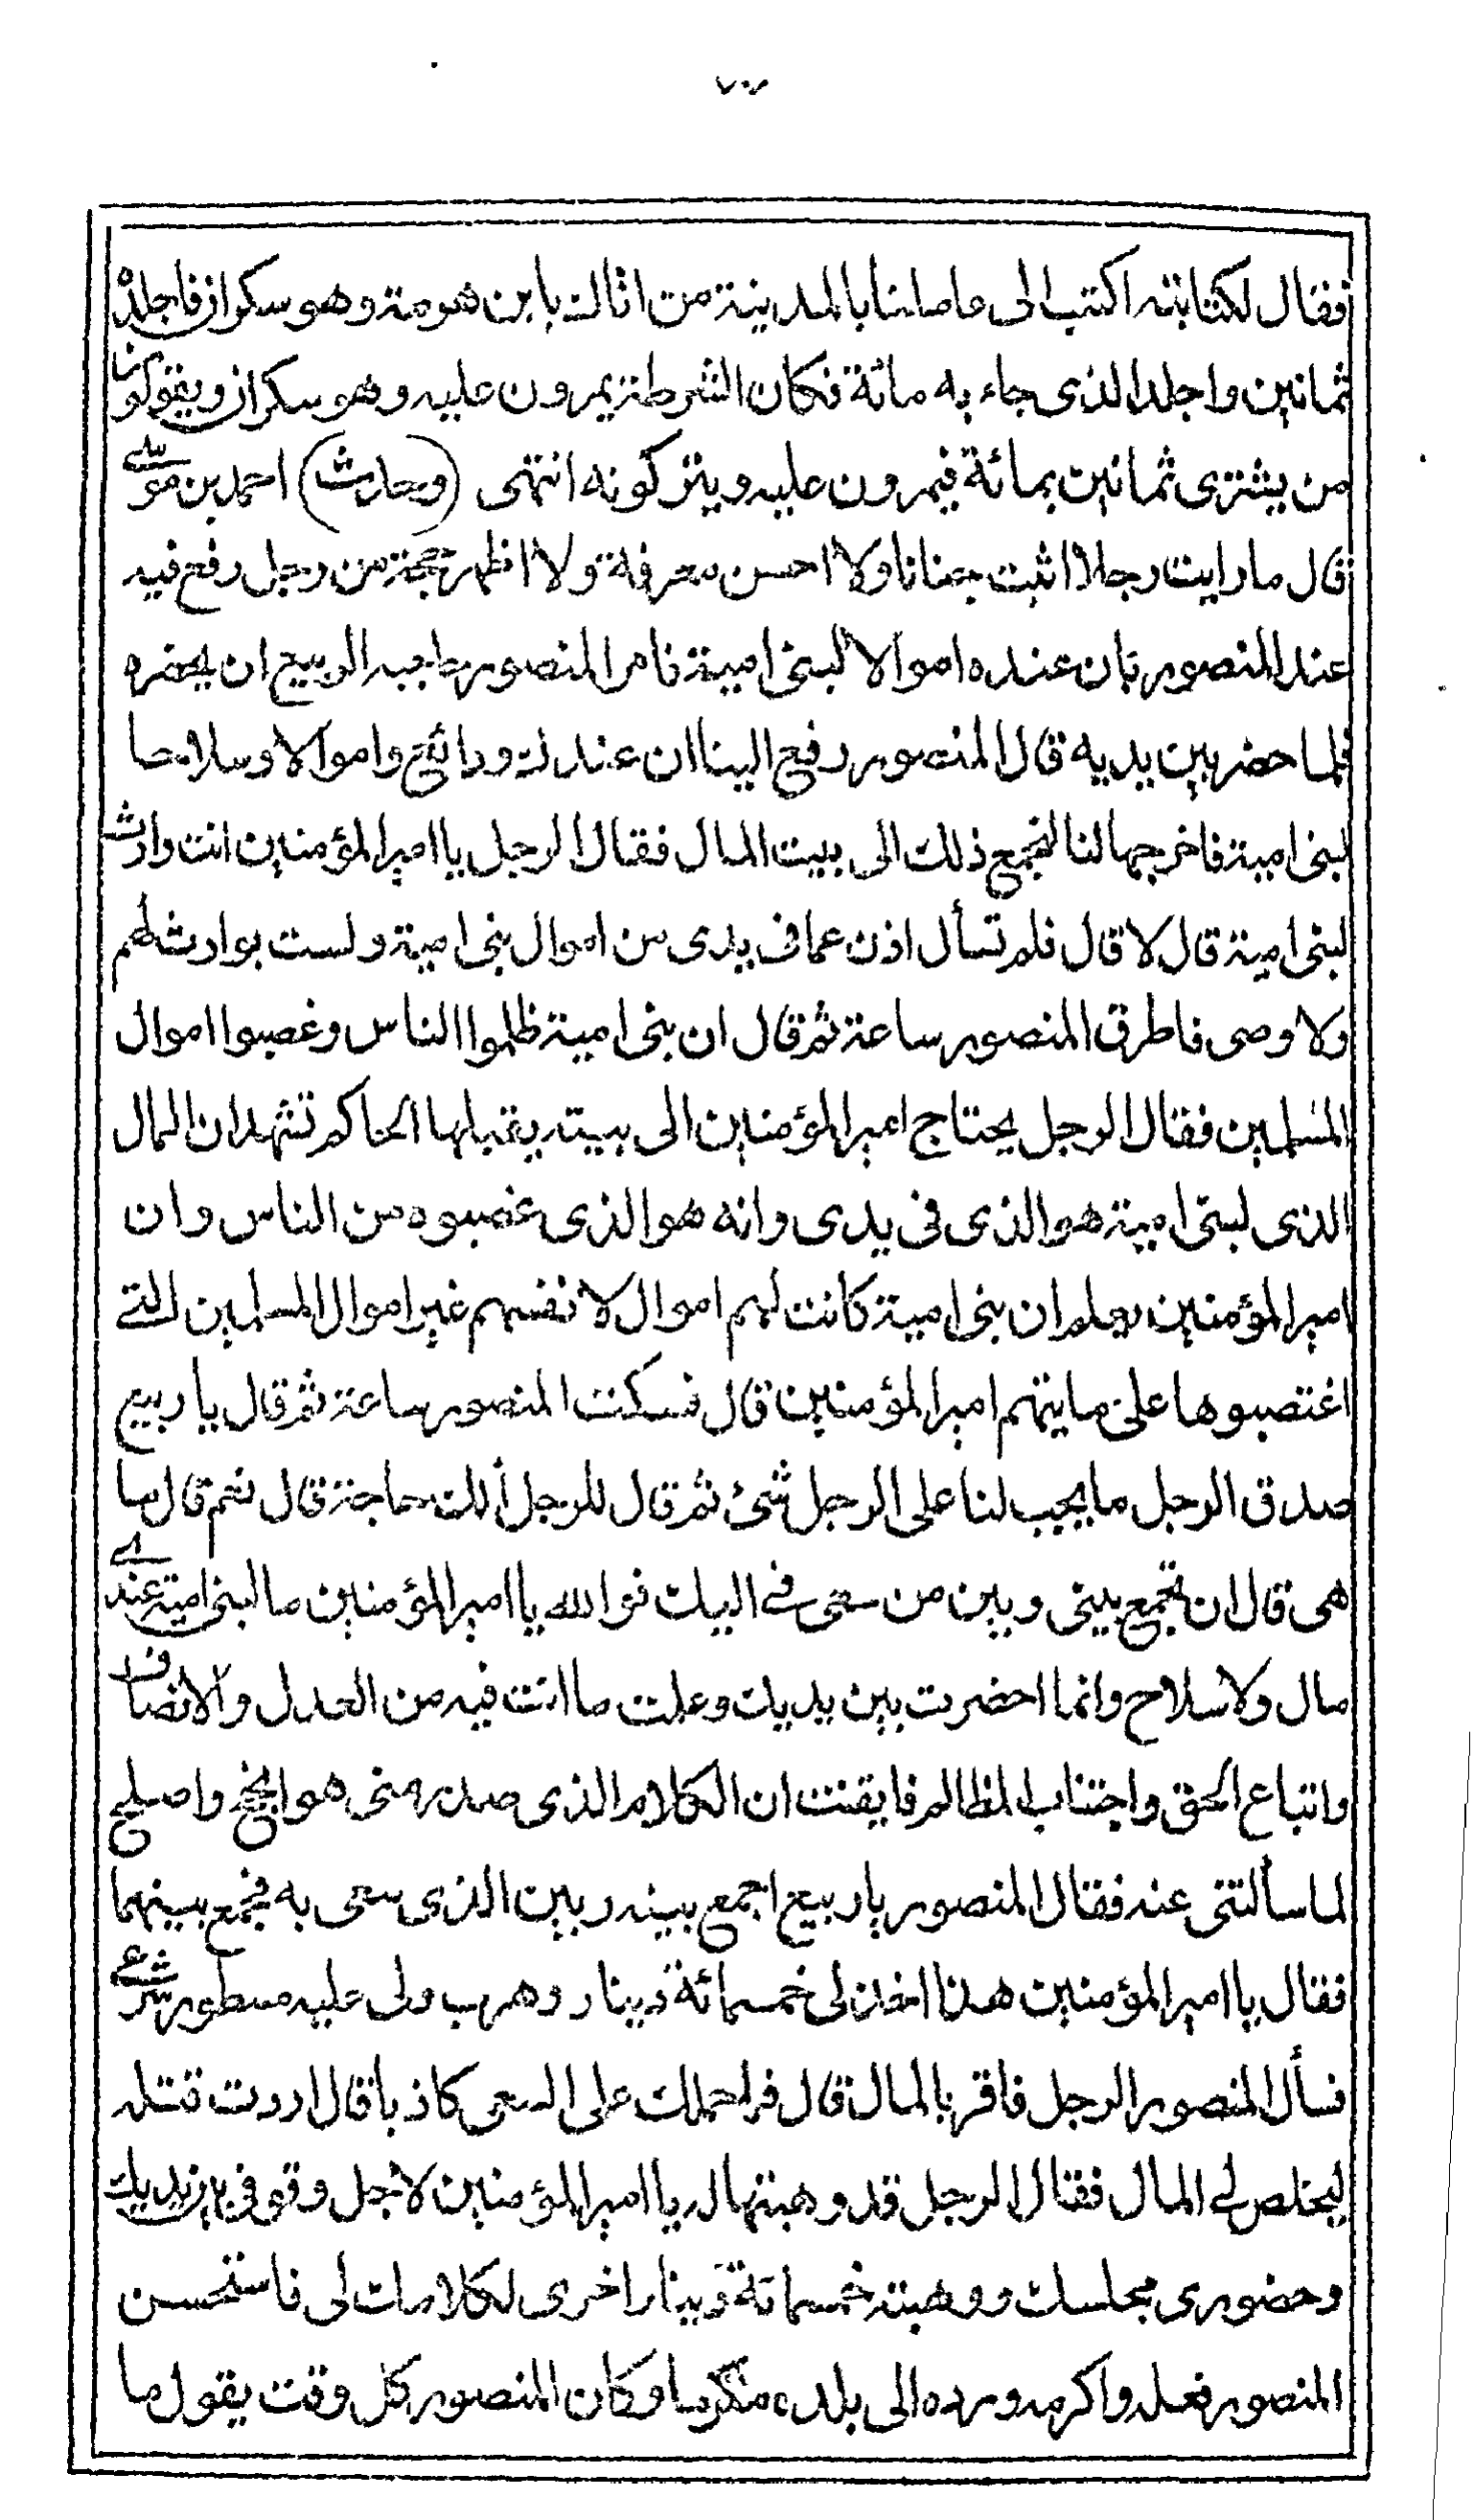 ٧٠٧
فقال لكتابته اكتب الى عاملنا بالمدينة من اتاك بابن هرمة وهو سكران فاجلده
ثمانين واجلد الذى جاء به مائة فكان الشرطة يمرون عليه وهو سكران ويقولون
من يشترى ثمانين بمائة فيمرون عليه ويتركونه انتهى (وحدث) احمد بن موسى
قال ما رايت رجلا اثبت جنانا ولا احسن معرفة ولا اظهر حجة من رجل رفع فيه
عند المنصور بان عنده اموالا لبنى امية فامر المنصور حاجبه الربيع ان يحضره
فلما حضر بين يديه قال المنصور رفع الينا ان عندك ودائع واموالا وسلاحا
لبنى امية فاخرجها لنا لنجمع ذلك الى بيت المال فقال الرجل يا امير المؤمنين انت وارث
لبنى امية قال لا قال فلم تسأل اذن عما فى يدى من اموال بنى امية ولست بوارث لهم
ولا وصى فاطرق المنصور ساعة ثم قال ان بنى امية ظلموا الناس وغصبوا اموال
المسلمين فقال الرجل يحتاج امير المؤمنين الى بينة يقبلها الحاكم تشهد ان المال
الذى لبنى امية هو الذى فى يدى وانه هو الذى غصبوه من الناس وان
امير المؤمنين يعلم ان بنى امية كانت لهم اموال لانفسهم غير اموال المسلمين التى
اغتصبوها على ما يتهم امير المؤمنين قال فسكت المنصور ساعة ثم قال يا ربيع
صدق الرجل ما يجب لنا على الرجل شئ ثم قال للرجل ألك حاجة قال نعم قال ما
هى قال ان تجمع بينى وبين من سعى بى اليك فوالله يا امير المؤمنين ما لبنى امية عندى
مال ولا سلاح وانما احضرت بين يديك وعلمت ما انت فيه من العدل والانصاف
واتباع الحق واجتناب المظالم فايقنت ان الكلام الذى صدر منى هو انجح واصلح
لما سألتنى عنه فقال المنصور يا ربيع اجمع بينه وبين الذى سعى به فجمع بينهما
فقال يا امير المؤمنين هذا اخذ لى خمسمائة دينار وهرب ولى عليه مسطور شرعى
فسأل المنصور الرجل فاقر بالمال قال فما حملك على السعى كاذبا قال اردت قتله
ليخلص لى المال فقال الرجل قد وهبتها له يا امير المؤمنين لاجل وقوفى بين يديك
وحضورى مجلسك ووهبته خمسمائة دينار اخرى لكلامك لى فاستحسن
المنصور فعله واكرمه ورده الى بلده مكرما وكان المنصور كل وقت يقول ما